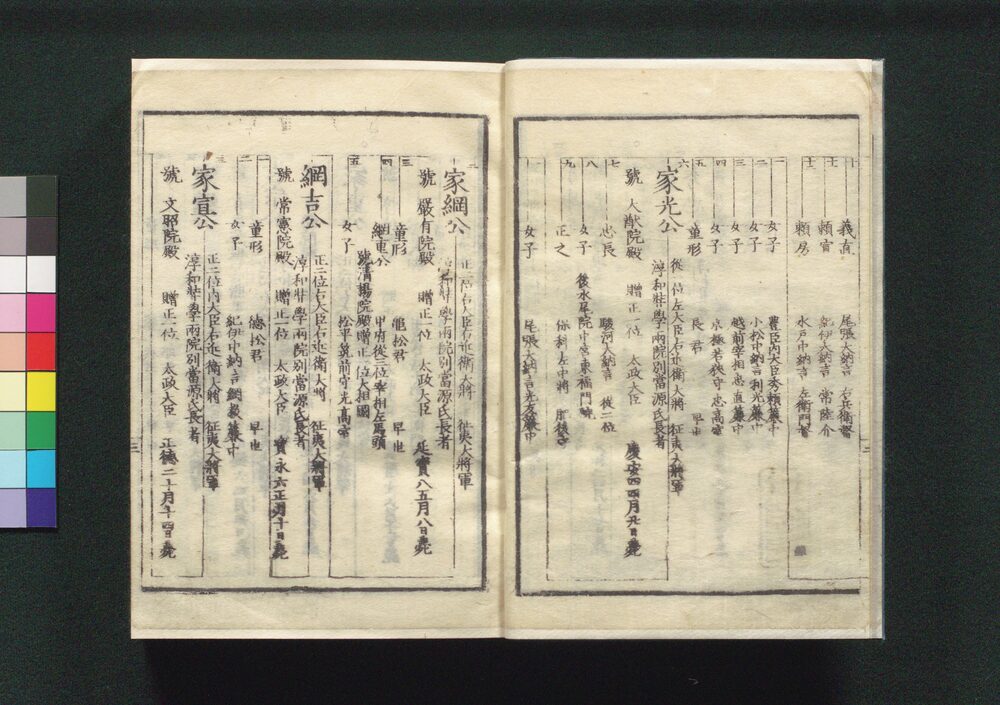 十 義直 尾張大納言 右兵衛督
十一 頼宣 紀伊大納言 常陸介
十二 頼房 水戸中納言 左衛門督
一 女子 豊臣内大臣秀頼簾中
二 女子 小松中納言利光簾中
三 女子 越前宰相忠直簾中
四 女子 京極若狭守忠高室
五 童形 長君 早世
六 家光公 従一位左大臣右近衛大将 征夷大将軍
淳和弉學両院別當源氏長者
號 大猷院殿 贈正一位 太政大臣 慶安四四月廿日薨
七 忠長 駿河大納言 従二位
八 女子 後水尾院中宮東福門院
九 正之 保科左中将 肥後守
一 女子 尾張大納言光友簾中
二 家綱公 正二位右大臣右近衛大将 征夷大将軍
淳和弉學両院別當源氏長者
號 嚴有院殿 贈正一位 太政大臣 延寶八五月八日薨
三 童形 亀松君 早世
四 綱重公 甲府従三位宰相左馬頭
號清揚院殿贈正一位大相國
五 女子 松平筑前守光高室
綱吉公 正二位右大臣右近衛大将 征夷大将軍
淳和弉學両院別當源氏長者
號 常憲院殿 贈正一位 太政大臣 寶永六正月十日薨
一 童形 徳松君 早世
二 女子 紀伊中納言綱教簾中
三 家宣公 正二位内大臣右近衛大将 征夷大将軍
淳和弉學両院別當源氏長者
號 文昭院殿 贈正一位 太政大臣 正徳二十月十四日薨